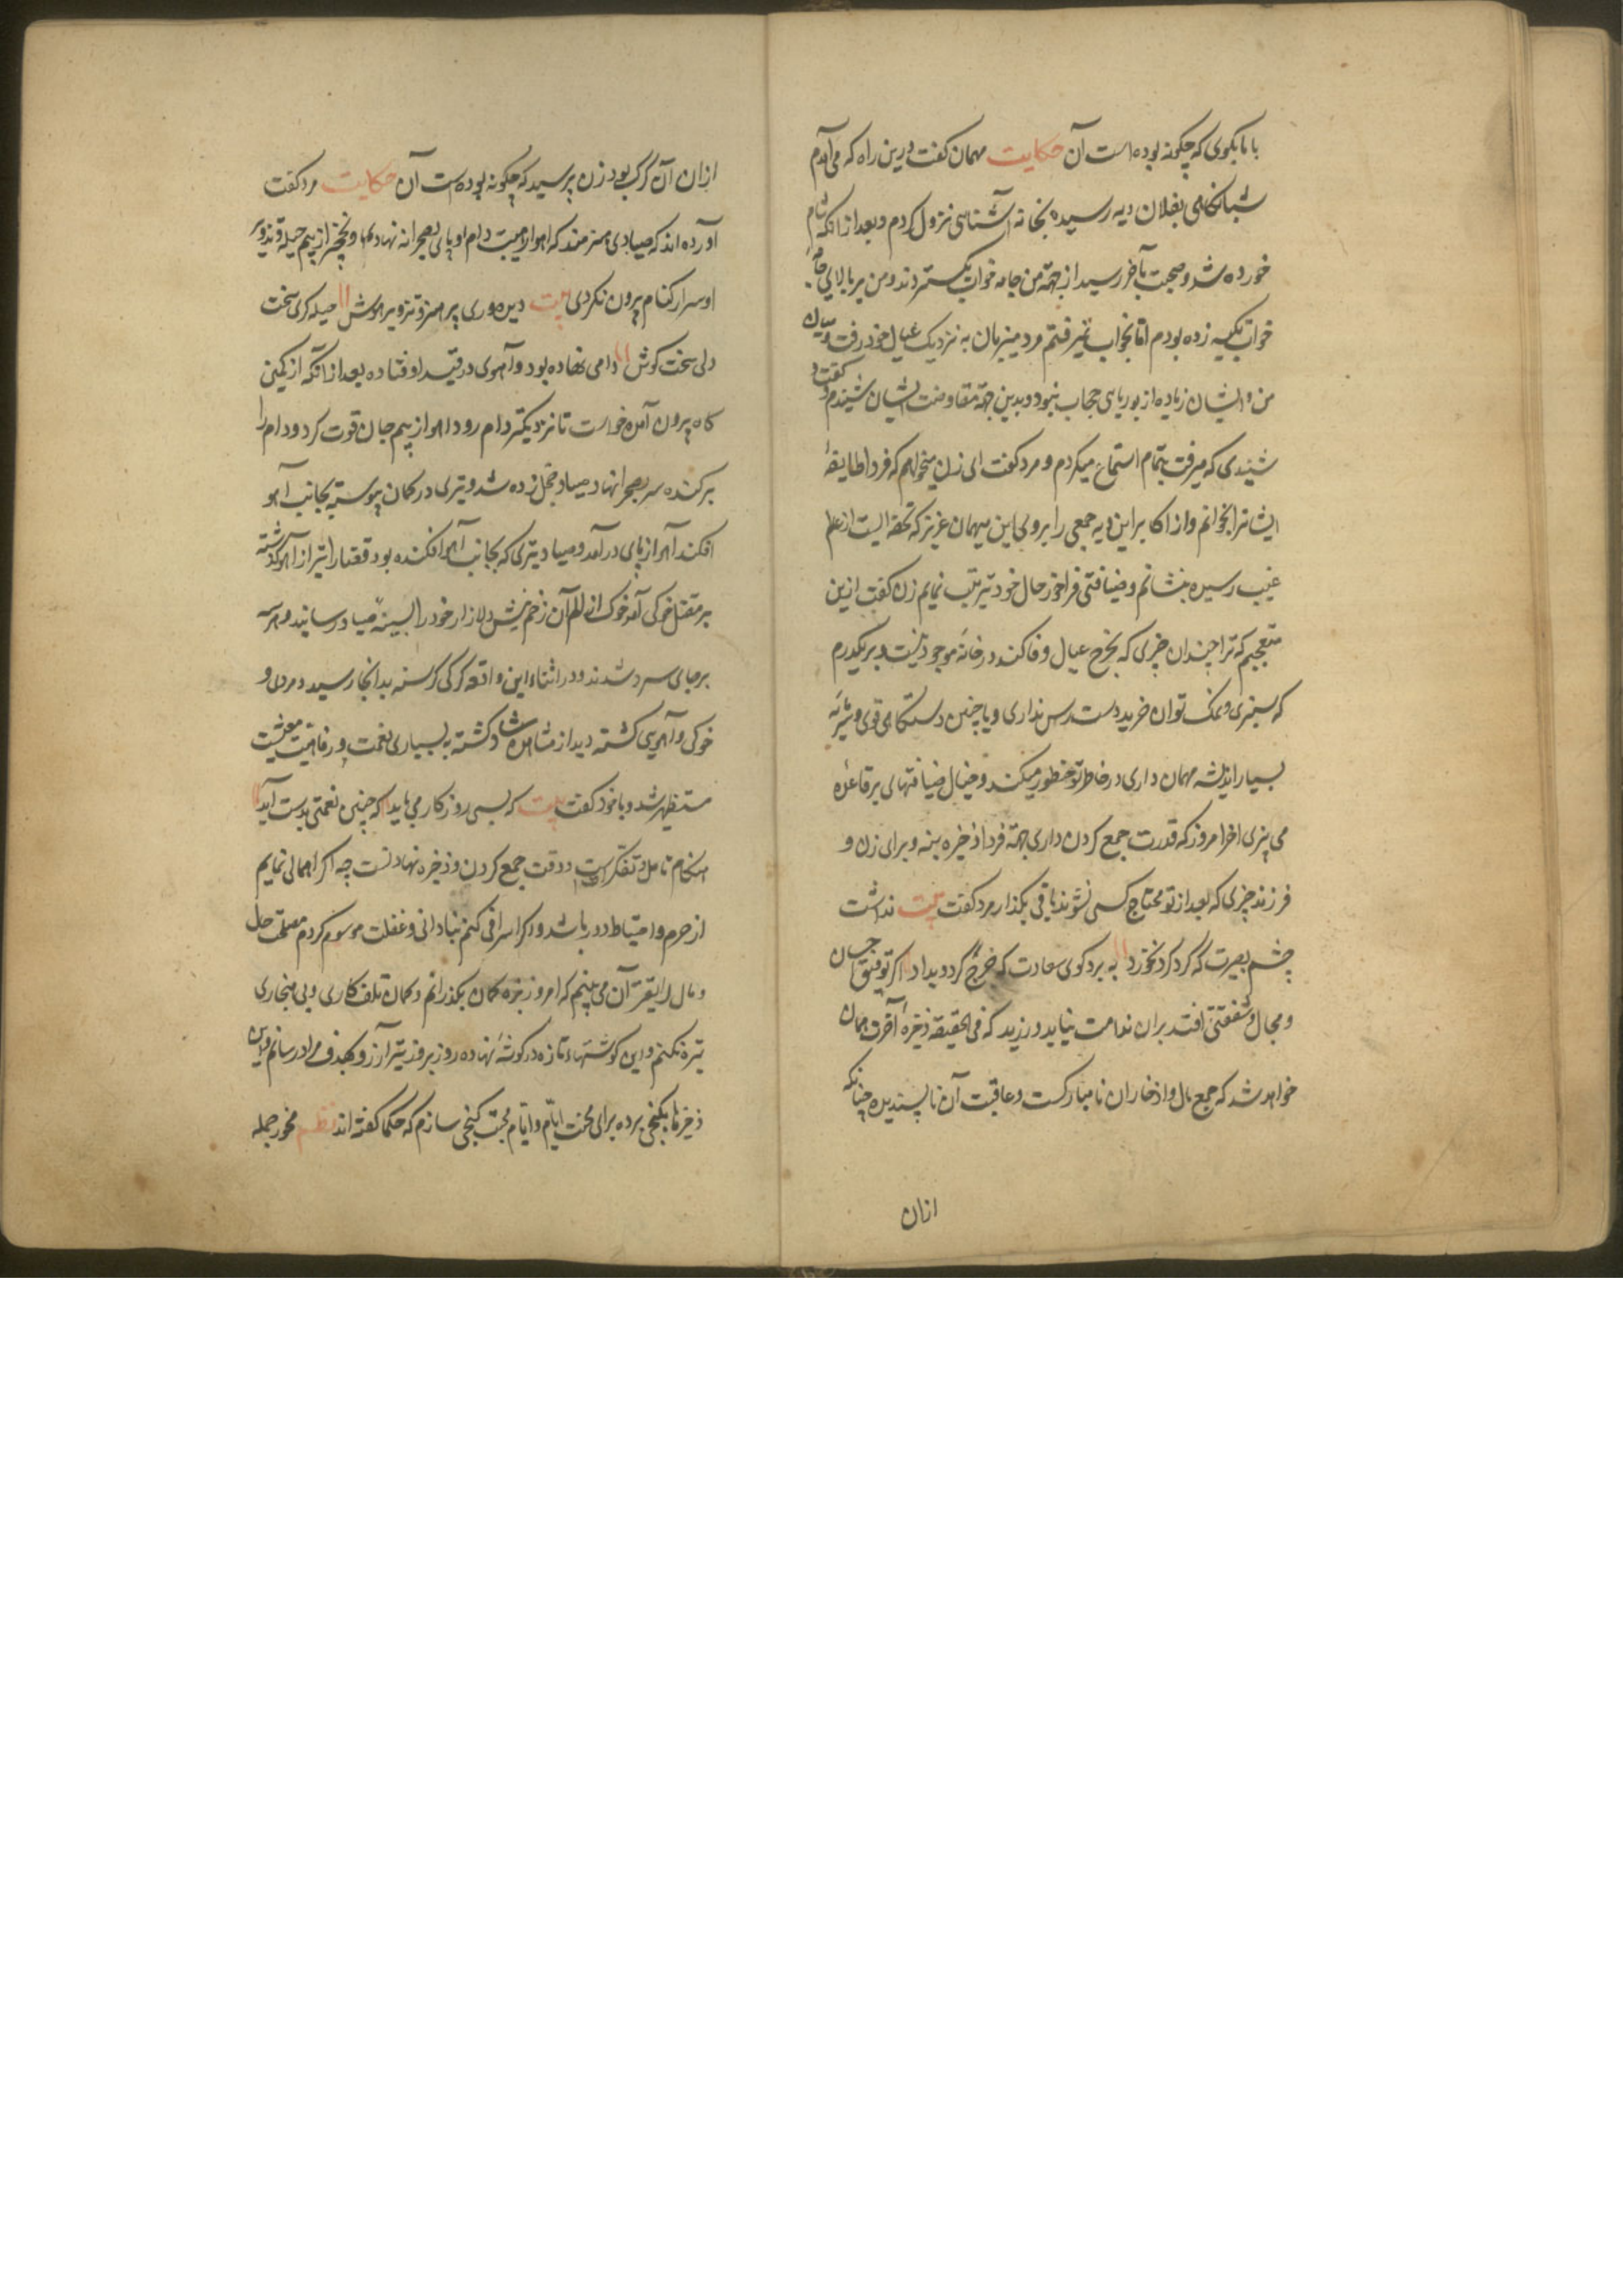 با ما بگوی که چگونه بوده است آن حکایت مهمان گفت درین راه که می آمدم
شبانگاهی بفلان دیه رسیده بخانه آشنایی نزول کردم و بعد از آنکه شام
خورده شد و صحبت بآخر رسید از جهة من جامه خواب بگستردند و من بر بالای جامه
خواب تکیه زده بودم اما بخواب نمیرفتم مرد میزبان به نزدیک عیال خود رفت و میان
من و ایشان زیاده از بوریایی حجاب نبود و بدین جهة مقاومت ایشان شنیدم گفت و
شنیدی که میرفت بتمام استماع میکردم و مرد گفت ای زن میخواهم که فردا طایفهٔ
ایشانرا بخوانم و از اکابر این دیه جمعی را بروی این میهمان عزیز که تحفه ایست از عالم
غیب رسیده بنشانم و ضیافتی فراخور حال خود ترتیب نمایم زن گفت ازین
متعجبم که ترا چندان چیزی که بخرج عیال وفا کند در خانهٔ موجود نیست و بر یکدرم
که سبزی و نمک توان خرید دست رس نداری و با چنین دستگاهی قوی و سرمایهٔ
بسیار اندیشه مهمان داری در خاطر تو خطور میکند و خیال ضیافتهای بر قاعدهٔ
می پزی اخر امروز که قدرت جمع کردن داری جهة فردا ذخیره بنه و برای زن و
فرزند چیزی که بعد از تو محتاج کسی نشوند باقی بگذار مرد گفت بیت نداشت
چشم بصیرت که گرد کرد و نخورد به برد کوی سعادت که خرج گردو بداد اگر توفیق احسان
و مجال و شفقتی افتد بران ندامت نباید ورزید که فی الحقیقه ذخیرهٔ آخرت همان
خواهد شد که جمع مال و اذخار ان نامبارکست و عاقبت آن ناپسندیده چنانکه
ازان
ازان آن گرگ بود زن پرسید که چگونه بوده ست آن حکایت مرد گفت
آورده اند که صیادی هنرمند که اهو از هیبت دام او پای بصحرا نه نهادی و نخچیر از بیم حیله و تزویر
او سر از کنام بیرون نکردی بیت دیده وری پر هنر و تزویر هوش حیله گری سخت
دلی سخت کوش دامی نهاده بود و آهوی در قید او فتاده بعد از آنکه از کمین
گاه بیرون آمده خواست تا نزدیک دام رود اهو از بیم جان قوت کرد و دام را
برکنده سر بصحرا نهاد صیاد خجل زده شد و تیری در کمان پیوسته بجانب آهو
افکند آهو از پای درآمد و صیاد تیری که بجانب آهو افکنده بود قضا را تیر از آهو گذشته
بر مقتل خوکی آمد خوک از الم آن زخم نیش دلازار خود را بسینهٔ صیاد رسانید و هر سه
بر جای سرد شدند و در اثناء این واقعه گرگی گرسنه بدانجا رسید و مردی و
خوکی و آهویی کشته دید از مشاهده شاد گشته به بسیاری نعمت و رفاهیت معیشت
مستظهر شد و با خود گفت بیت که بسی روزگار می باید که چنین نعمتی بدست آید
هنگام تامل و تفکر است و وقت جمع کردن و ذخیره نهادنست چه اگر اهمالی نمایم
از حزم و احتیاط دور باشد و اگر اسرافی کنم بنادانی و غفلت موسوم گردم مصلحت حال
و مال را بقرت آن می بینم که امروز بزه کمان بگذرانم و کمان تلف کاری و بی هنجاری
تیزه نکنم و این گوشتهاء تازه در گوشهٔ نهاده روز بروز تیر آرزو بهدف مراد رسانم و این
ذخیرها بگنجی برده برای محنت ایام و ایام محنت گنجی سازم که حکما گفته اند نظم مخور جمله